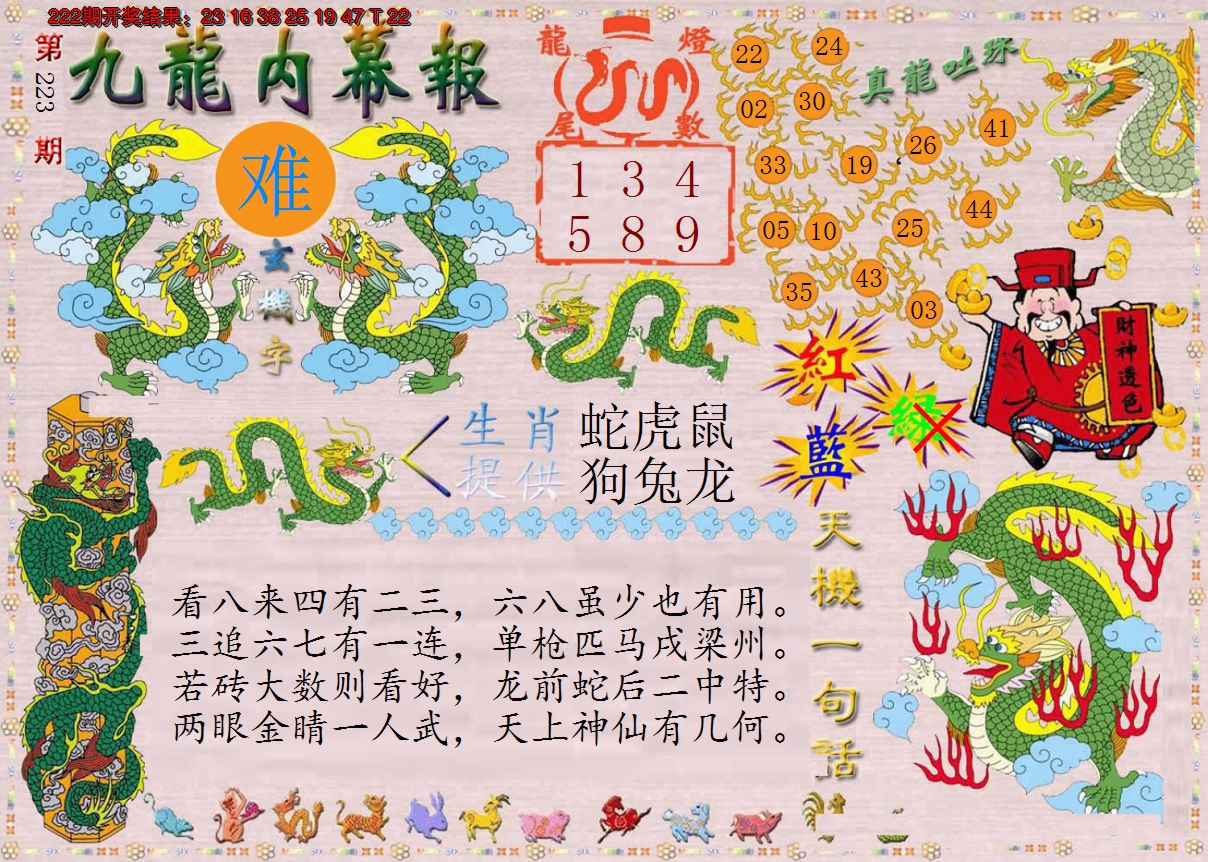 222期开奖结果：23 16 38 25 19 47 T 22
第223期
九龍内幕報
难
玄機字
龍燈
尾數
1 3 4
5 8 9
真龍吐珠
22 24
02 30
33 19 26 41
05 10 25 44
35 43 03
紅
綠
藍
財神透色
生肖提供
蛇虎鼠
狗兔龙
天機一句話
看八来四有二三，六八虽少也有用。
三追六七有一连，单枪匹马戌梁州。
若砖大数则看好，龙前蛇后二中特。
两眼金睛一人武，天上神仙有几何。